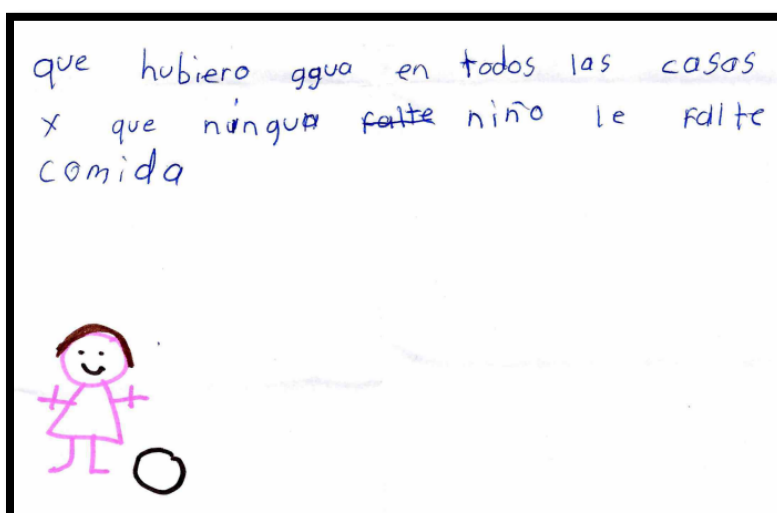 que hubiero agua en todos las casas
x que ningun falte niño le falte
comida